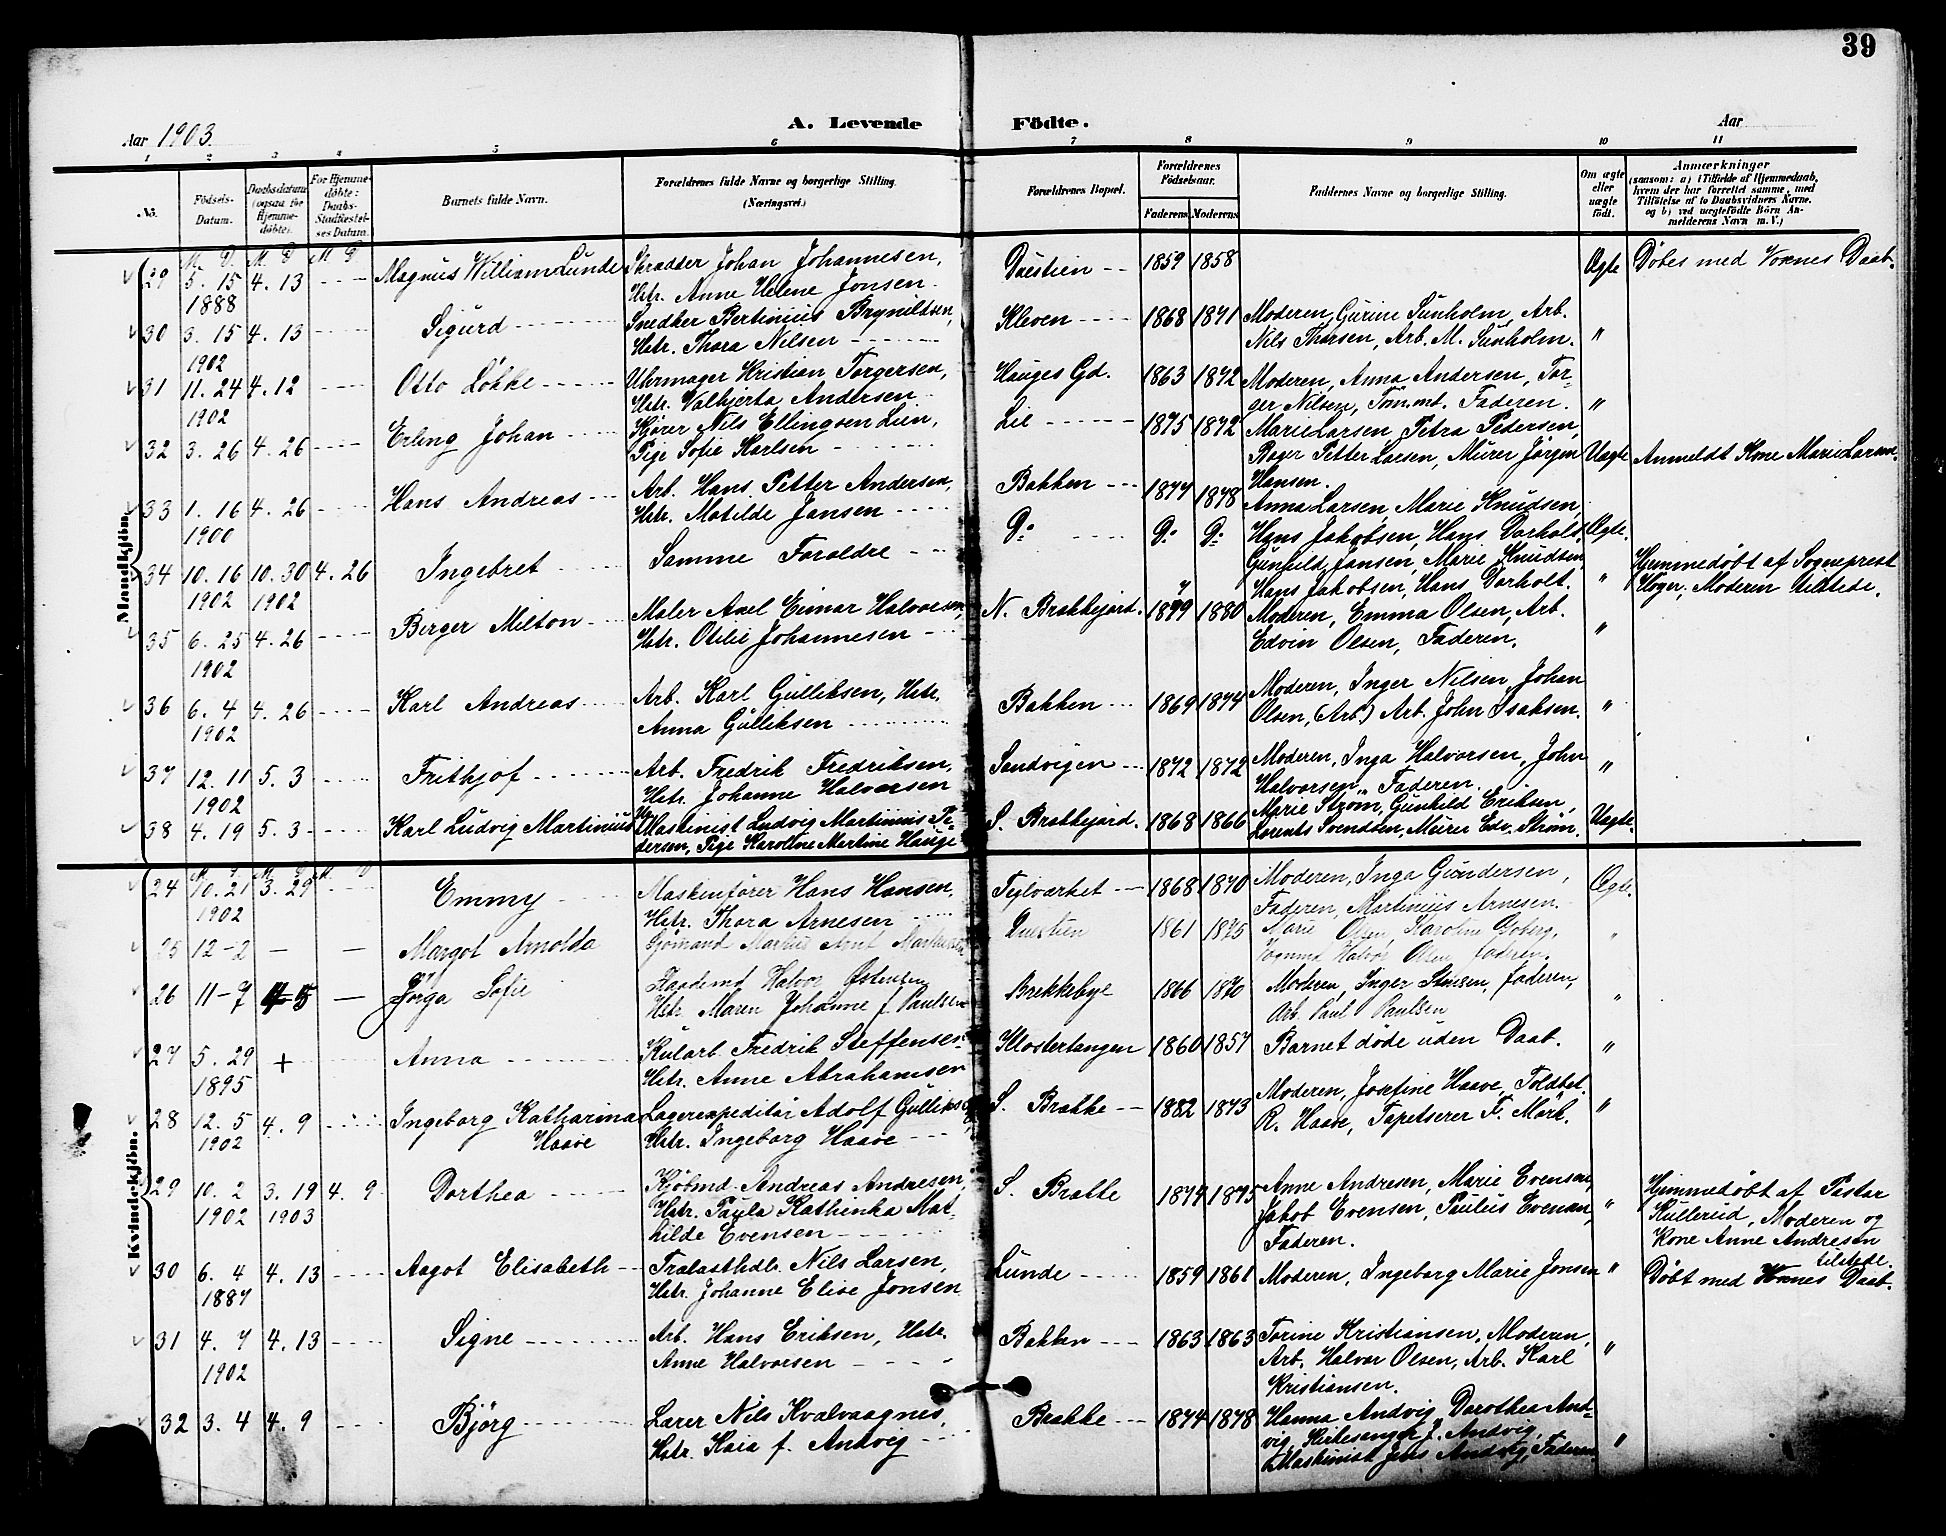 39
Aar 1903.
A. Levende Födte.
Aar
1 2 3 4 5 6 7 8 9 10 11
No.
Födsels-Datum.
Daabsdatum (ogsaa for Hjemmedöbte).
For Hjemmedöbte: Daabs-Stadfæstelses Datum.
Barnets fulde Navn.
Forældrenes fulde Navne og borgerlige Stilling. (Næringsvei.)
Forældrenes Bopæl.
Forældrenes Födselsaar.
Faderens Moderens
Faddernes Navne og borgerlige Stilling.
Om ægte eller uægte födt.
Anmærkninger
(saasom: a) i Tilfælde af Hjemmedaab, hvem der har forrettet samme, med Tilföielse af to Daabsvidners Navne. og b) ved uægtefödte Börn Anmelderens Navn m. V.)
Mandkjön.
M. D. M. D. M. D.
29 5. 15 1888 4. 13 Magnus William Lunde Skrædder Johan Johannesen, Hstr. Anne Helene Jonsen 1859 1858 Ægte Döbes med Voxnes Daab.
30 3. 15 1902 4. 13 Sigurd Snedker Bertinius Brynildsen, Hstr. Thora Nilsen Kleven 1868 1871 Moderen, Gurine Sunholm, Arb. Nils Thorsen, Arb. M. Sunholm. "
31 11. 24 1902 4. 12 Otto Lökke Uhrmager Kristian Torgersen, Hstr. Valhjerta Andersen Hauges Gd. 1863 1872 Moderen, Anna Andersen, Torger Nilsen, Töm.mt. Faderen. "
32 3. 26 4. 26 Erling Johan Kjörer Nils Ellingsen Lien, Pige Sofie Karlsen Lie 1875 1872 Marie Larsen, Petra Pedersen, Bager Petter Larsen, Murer Jörgen Hansen. Uægte Anmeldt Kone Marie Larsen.
33 1. 16 1900 4. 26 Hans Andreas Arb. Hans Petter Andersen, Hstr. Matilde Jansen Bakken 1877 1878 Anna Larsen Marie Knudsen, Hans Jakobsen, Hans Dorholt. Ægte.
34 10. 16 1902 10. 30 1902 4. 26 Ingebret Samme Foreldre Do Do Do Gunhild Jansen, Marie Knudsen, Hans Jakobsen, Hans Dorholt. " Hjemmedöbt af Sogneprest Höyer, Moderen tilstede.
35 6. 25 1902 4. 26 Berger Milton Maler Axel Einar Halvorsen, Hstr. Otilie Johannesen N. Brækkejord. 1879 1880 Moderen, Emma Olsen, Arb. Edvin Olsen, Faderen. "
36 6. 4 1902 4. 26 Karl Andreas Arb. Karl Gulliksen, Hstr. Anna Gulliksen Bakken 1869 1874 Moderen, Inger Nilsen, Johan Olsen, (Arb.) Arb. John Isaksen. "
37 12. 11 1902 5. 3 Frithjof Arb. Fredrik Fredriksen, Hstr. Johanne Halvorsen Sandvigen 1872 1872 Moderen, Inga Halvorsen, John Halvorsen, Faderen. "
38 4. 19 5. 3 Karl Ludvig Martinius Maskinist Ludvig Martinius Pedersen, Pige Karoline Mertine Hauge S. Brækkejord. 1868 1866 Marie Ström, Gunhild Eriksen, Lorents Svendsen, Murer Edv. Ström. Uægte.
Kvindekjön.
24 10. 21 1902 3. 29 Emmy Maskinfører Hans Hansen, Hstr. Thora Arnesen Fejlværket 1868 1870 Moderen, Inga Gundersen, Faderen, Martinius Arnesen. Ægte.
25 12 - 2 — — Margot Arnolda Sjömand Markus Arnt 1861 1875 Marie Olsen, Karoline Goberg, Halvor Olsen, faderen. "
26 11 - 7 4 - 5 — Jörga Sofie Halvor Østensen Hstr. Maren Johanne f. Paulsen Brekkebye 1866 1870 Moderen, Inger Stiesen, faderen, Arb. Paul Paulsen "
27 5. 29 1895 + Anna Kularb. Fredrik Steffensen Hstr. Anne Abrahamsen Klostertangen 1860 1857 Barnet døde uden Daab. "
28 12. 5 1902 4. 9 Ingeborg Katharina Haave Lagerexpeditör Adolf Gulliksen, Hstr. Ingeborg Haave S. Brække 1882 1873 Moderen, Josefine Haave, Toldbet. R. Haave, Tapetserer F. Mörk. "
29 10. 2 1902 3. 19 1903 4. 9 Dorthea Kjöbmd. Andreas Andresen, Hstr. Paula Kathinka Mathilde Evensen S. Brække 1874 1875 Anne Andresen, Marie Evensen, Jakob Evensen, Paulus Evensen, Faderen. " Hjemmedöbt af Pastor Kullerud, Moderen og Kone Anne Andresen tilstede.
30 6. 4 1887 4. 13 Aagot Elisabeth Trælasthdlr. Nils Larsen, Hstr. Johanne Elise Jonsen Lunde 1859 1861 Moderen, Ingeborg Marie Jonsen " Döbt med Voxnes Daab.
31 4. 7 1902 4. 13 Signe Arb. Hans Eriksen, Hstr. Anne Halvorsen Bakken 1863 1863 Torine Kristiansen, Moderen, Arb. Halvor Olsen, Arb. Karl Kristiansen. "
32 3. 4 4. 9 Bjørg Lærer Nils Kvalvaagnes, Hstr. Kaia f. Andvig Brække 1874 1878 Hanna Andvig, Dorothea Andvig, Kirkesanger J. Andvig, Maskinist Jens Andvig, Faderen. "